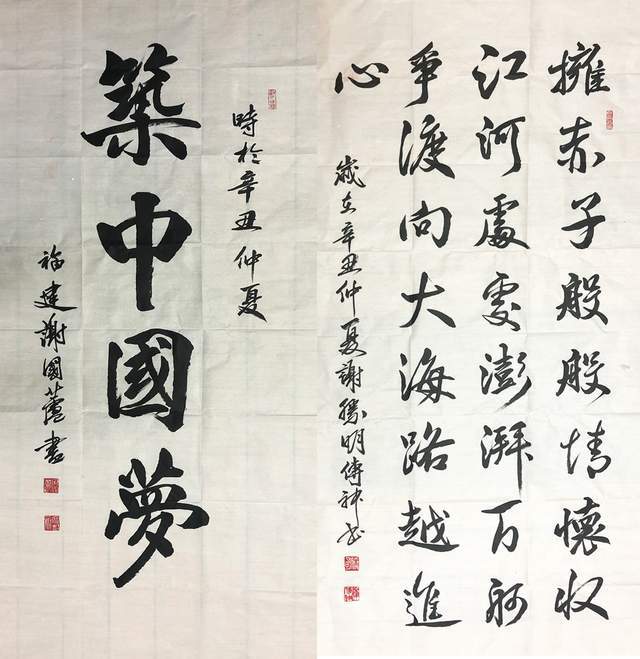 擁赤子殷殷情懷收
江河處處澎湃百舸
爭渡向大海路越進
心
歲在辛丑仲夏謝勝明傳神書
時於辛丑仲夏
築中國夢
福建謝國書